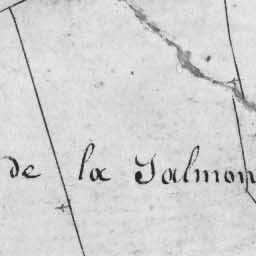 de la Salmon